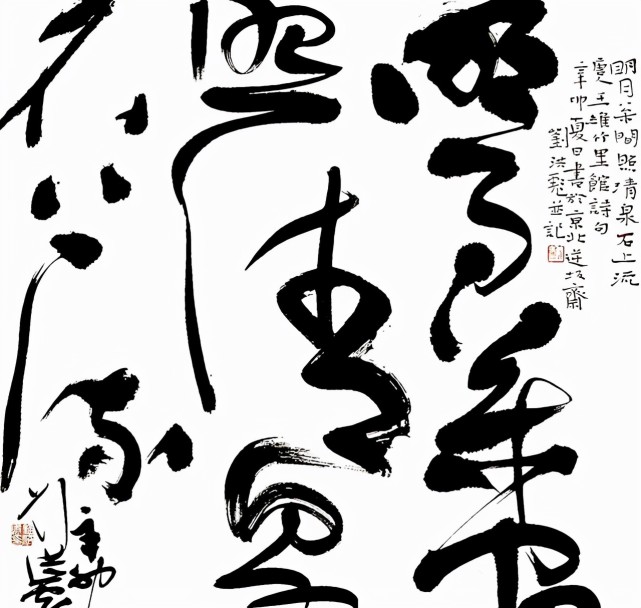 明月枀間
照清泉
石上流
辛卯
明月枀間照清泉石上流
王維竹里館詩句
辛卯夏日書於京北逆坂齋
劉洪彪並記